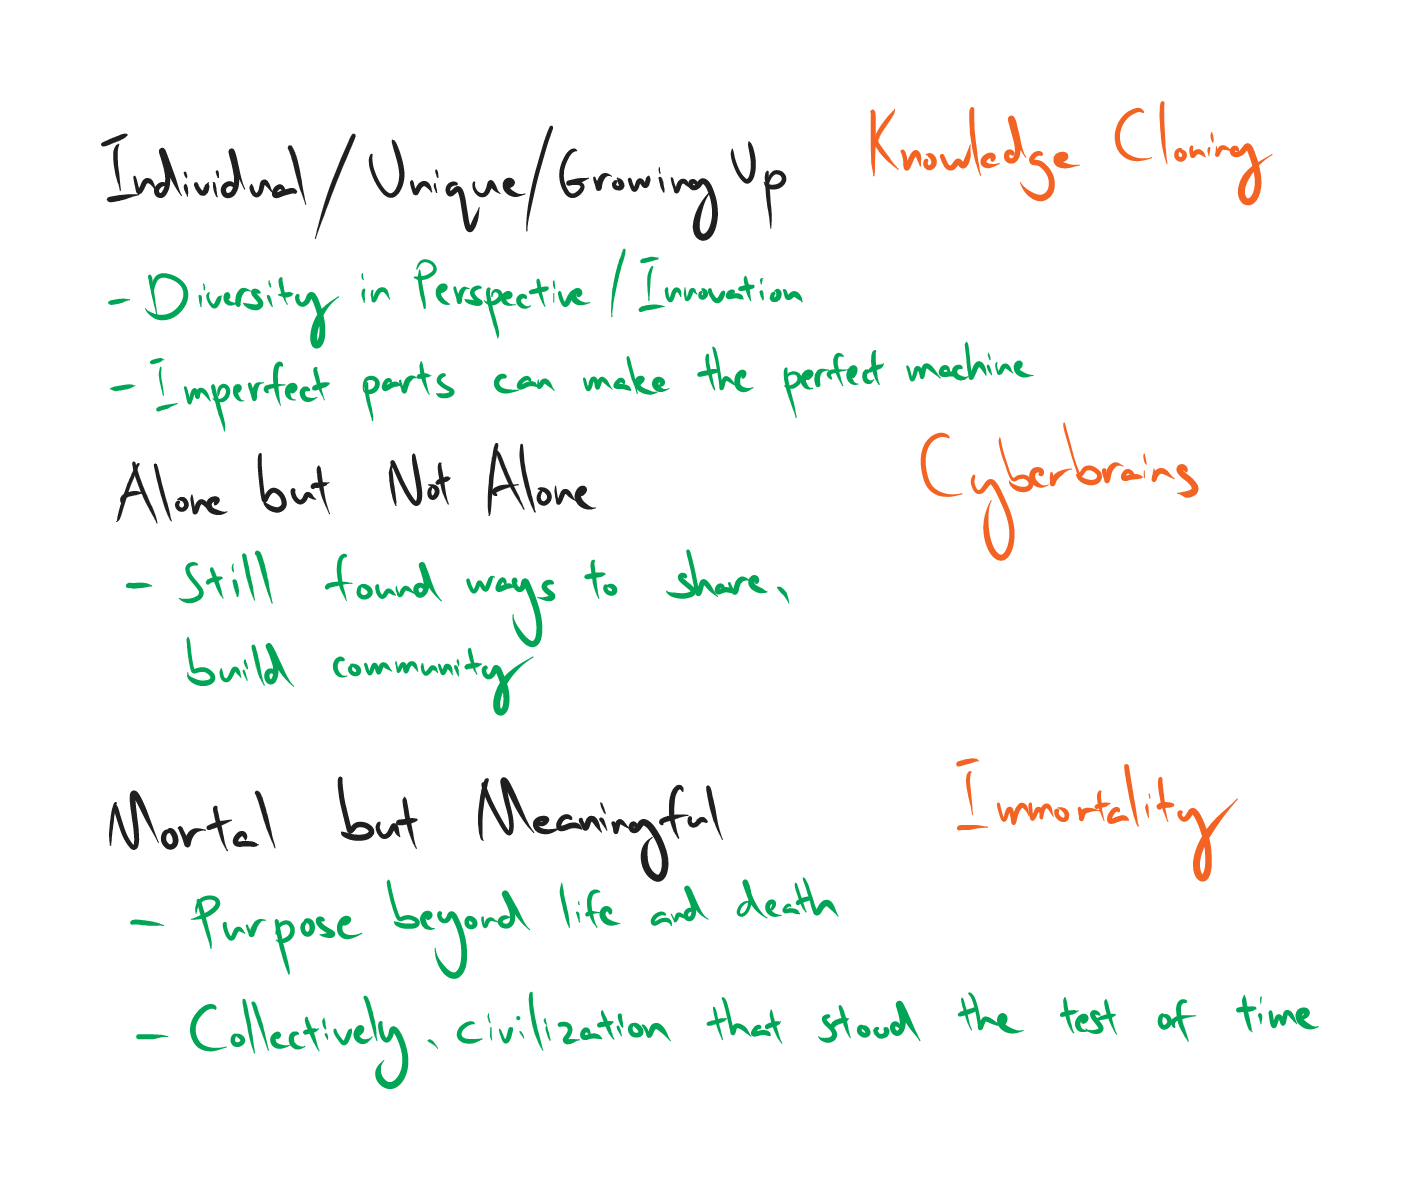 Individual/Unique/Growing Up
Knowledge Cloning
- Diversity in Perspective/Innovation
- Imperfect parts can make the perfect machine
Alone but Not Alone
Cyberbrains
- Still found ways to share,
build community
Mortal but Meaningful
Immortality
- Purpose beyond life and death
- Collectively, civilization that stood the test of time